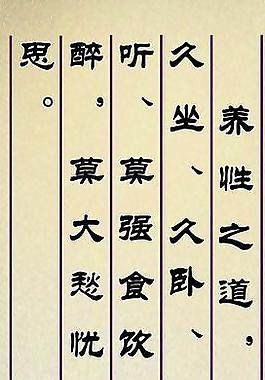 养性之道，
久坐、久卧、
听、莫强食饮
醉，莫大愁忧
思。